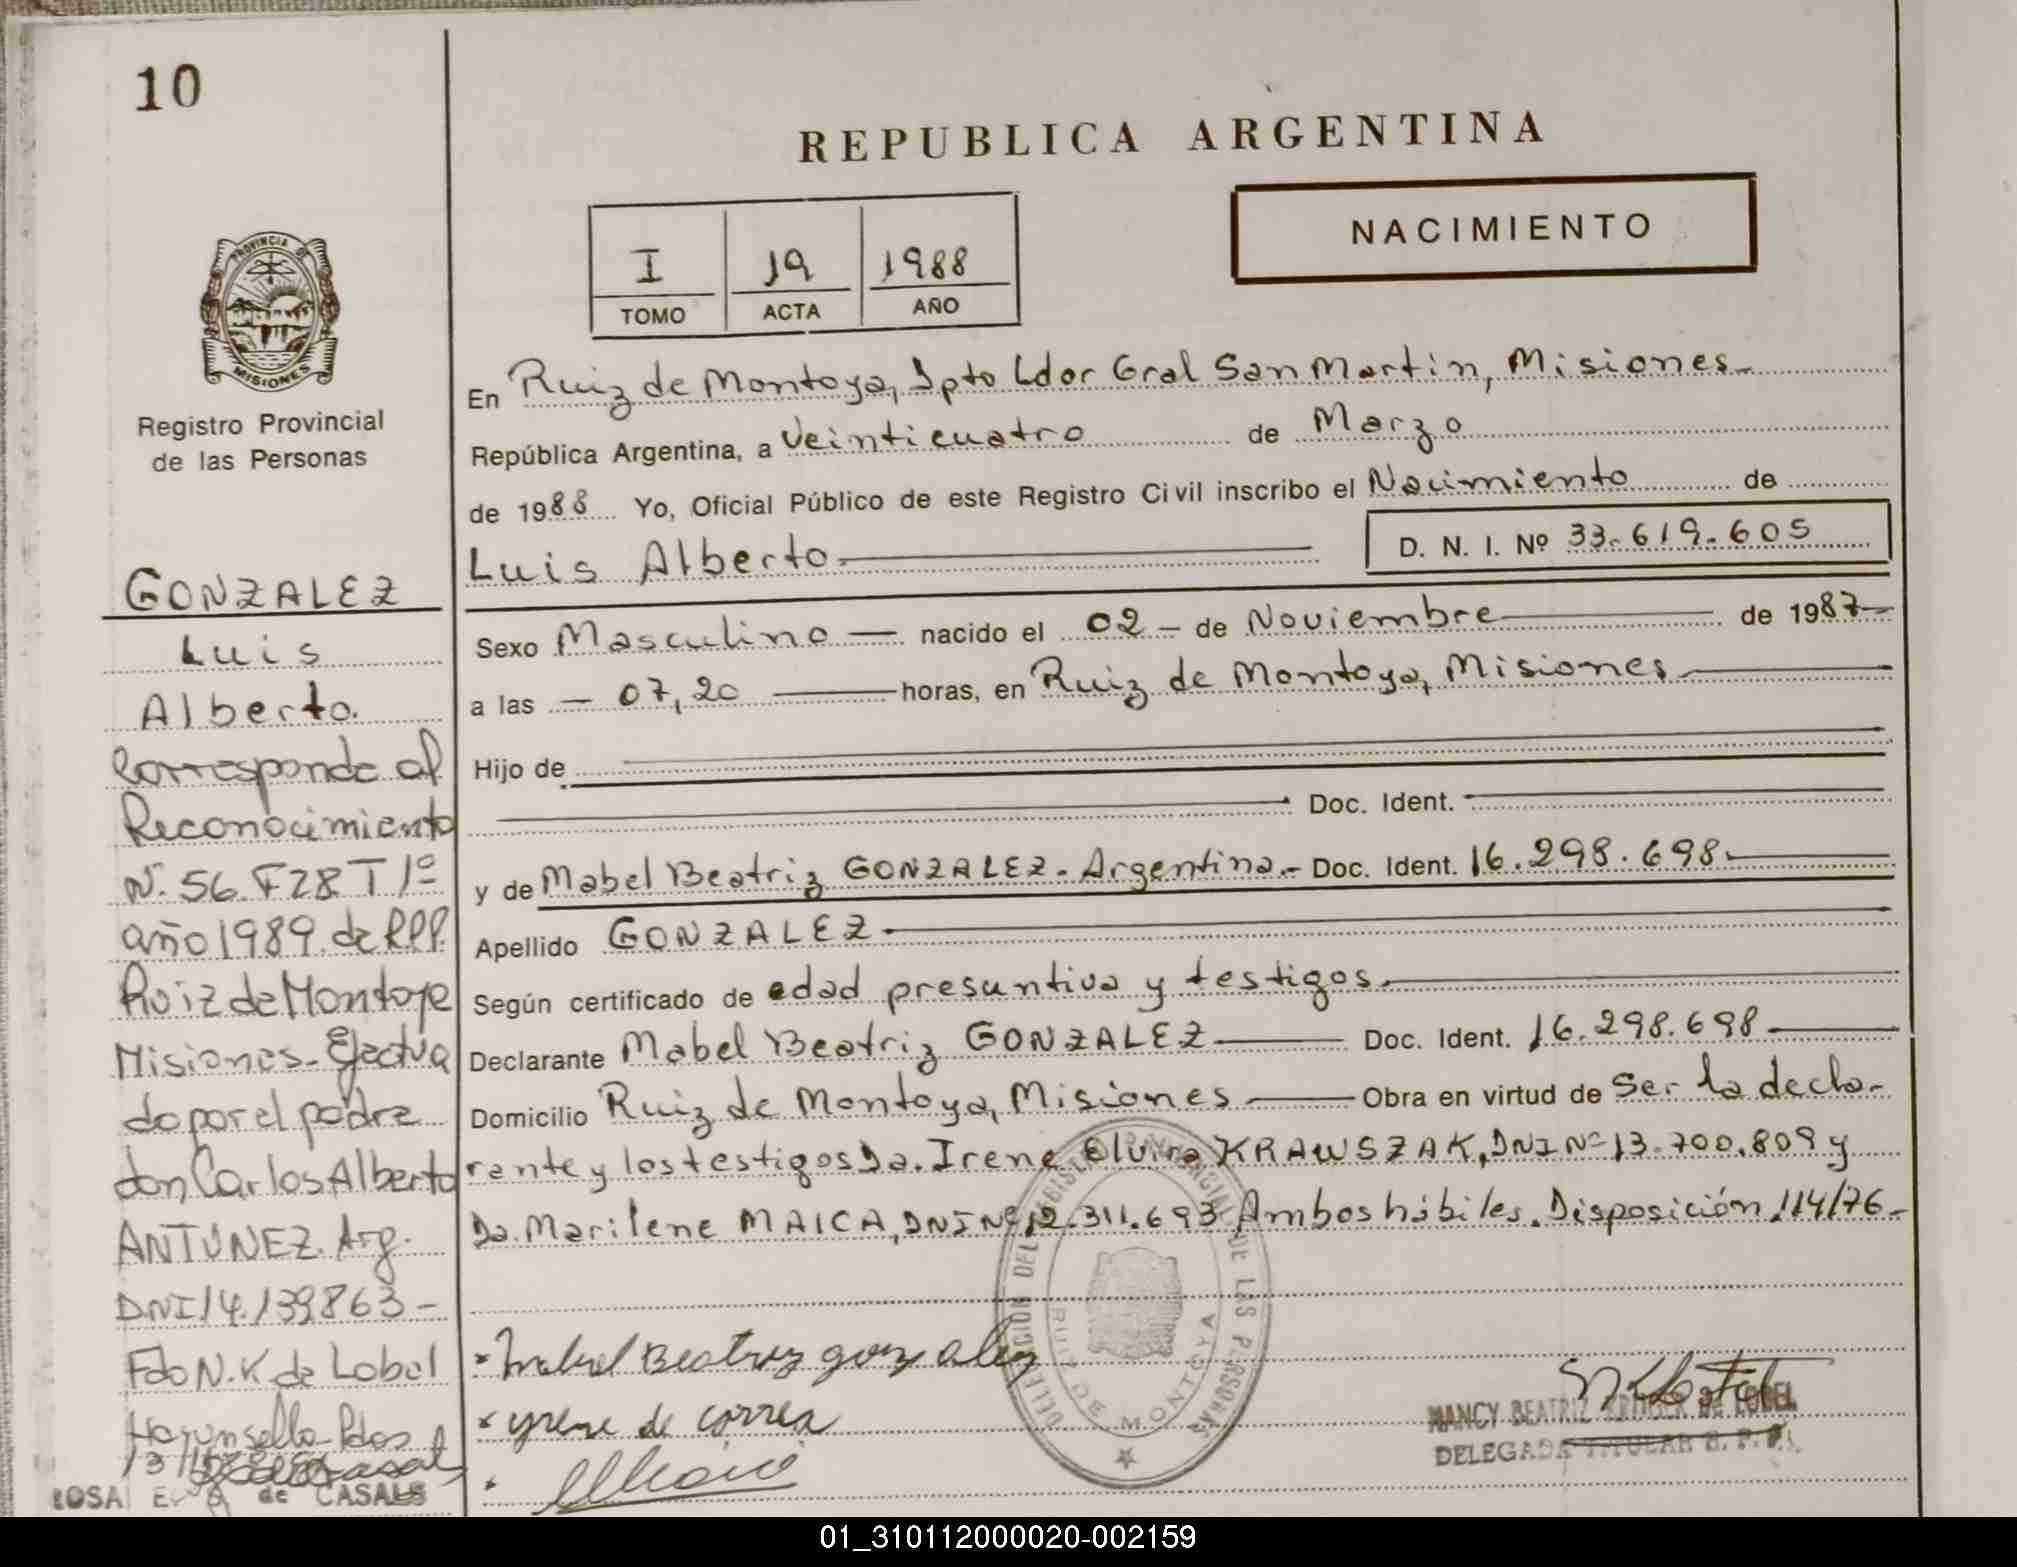 10
REPUBLICA ARGENTINA
NACIMIENTO
I 19 1988
TOMO ACTA AÑO
PROVINCIA DE
MISIONES
Registro Provincial
de las Personas
GONZALEZ
Luis
Alberto.
Corresponde al
Reconocimiento
Nº.56.F28 T 1º
año 1989. de R.P.P.
Ruiz de Montoya
Misiones. Efectua
do por el padre
don Carlos Alberto
ANTUNEZ. Arg.
DNI 14.139863-
Fdo N.K de Lobel
Hay un sello Pdas
de CASALS
En Ruiz de Montoya, Dpto Ldor Gral San Martin, Misiones.
República Argentina, a Veinticuatro de Marzo
de 1988 Yo, Oficial Público de este Registro Civil inscribo el Nacimiento de
Luis Alberto D. N. I. Nº 33.619.605
Sexo Masculino nacido el 02 - de Noviembre de 1987
a las 07,20 horas, en Ruiz de Montoya, Misiones
Hijo de
Doc. Ident.
y de Mabel Beatriz GONZALEZ. Argentina.- Doc. Ident. 16.298.698
Apellido GONZALEZ
Según certificado de edad presuntiva y testigos.
Declarante Mabel Beatriz GONZALEZ Doc. Ident. 16.298.698
Domicilio Ruiz de Montoya, Misiones Obra en virtud de Ser la decla-
rante y los testigos Da. Irene Elvira KRAWSZAK, DNI Nº 13.700.809 y
Da. Marilene MAICA, DNI Nº 12.311.693 Ambos hábiles. Disposición 114/76-
DELEGACION DEL REGISTRO PROVINCIAL DE LAS PERSONAS
RUIZ DE MONTOYA
Mabel Beatriz gonzalez
yrene de correa
NANCY BEATRIZ KRUGER de LOBEL
DELEGADA TITULAR R. P. P.
01_310112000020-002159